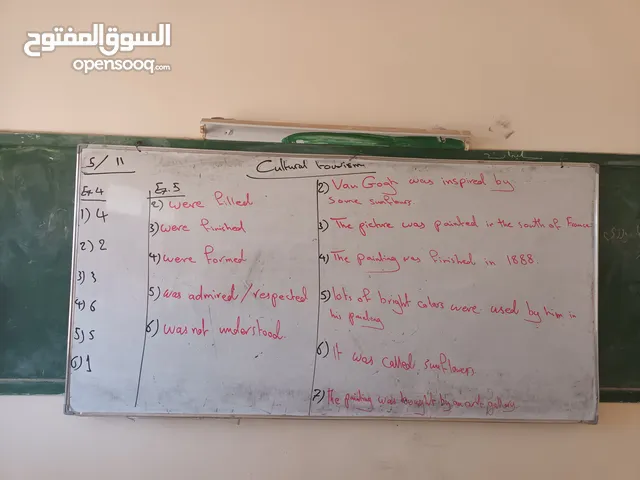 السوق المفتوح
opensooq.com
5 / 11
Cultural tourism
Ex. 4
1) 4
2) 2
3) 3
4) 6
5) 5
6) 1
Ex. 5
2) were filled
3) were finished
4) were formed
5) was admired / respected
6) was not understood.
2) Van Gogh was inspired by
some sunflowers
3) The picture was painted in the south of France
4) The painting was finished in 1888.
5) lots of bright colors were used by him in
his painting
6) It was called sunflowers
7) The painting was bought by an art gallery.